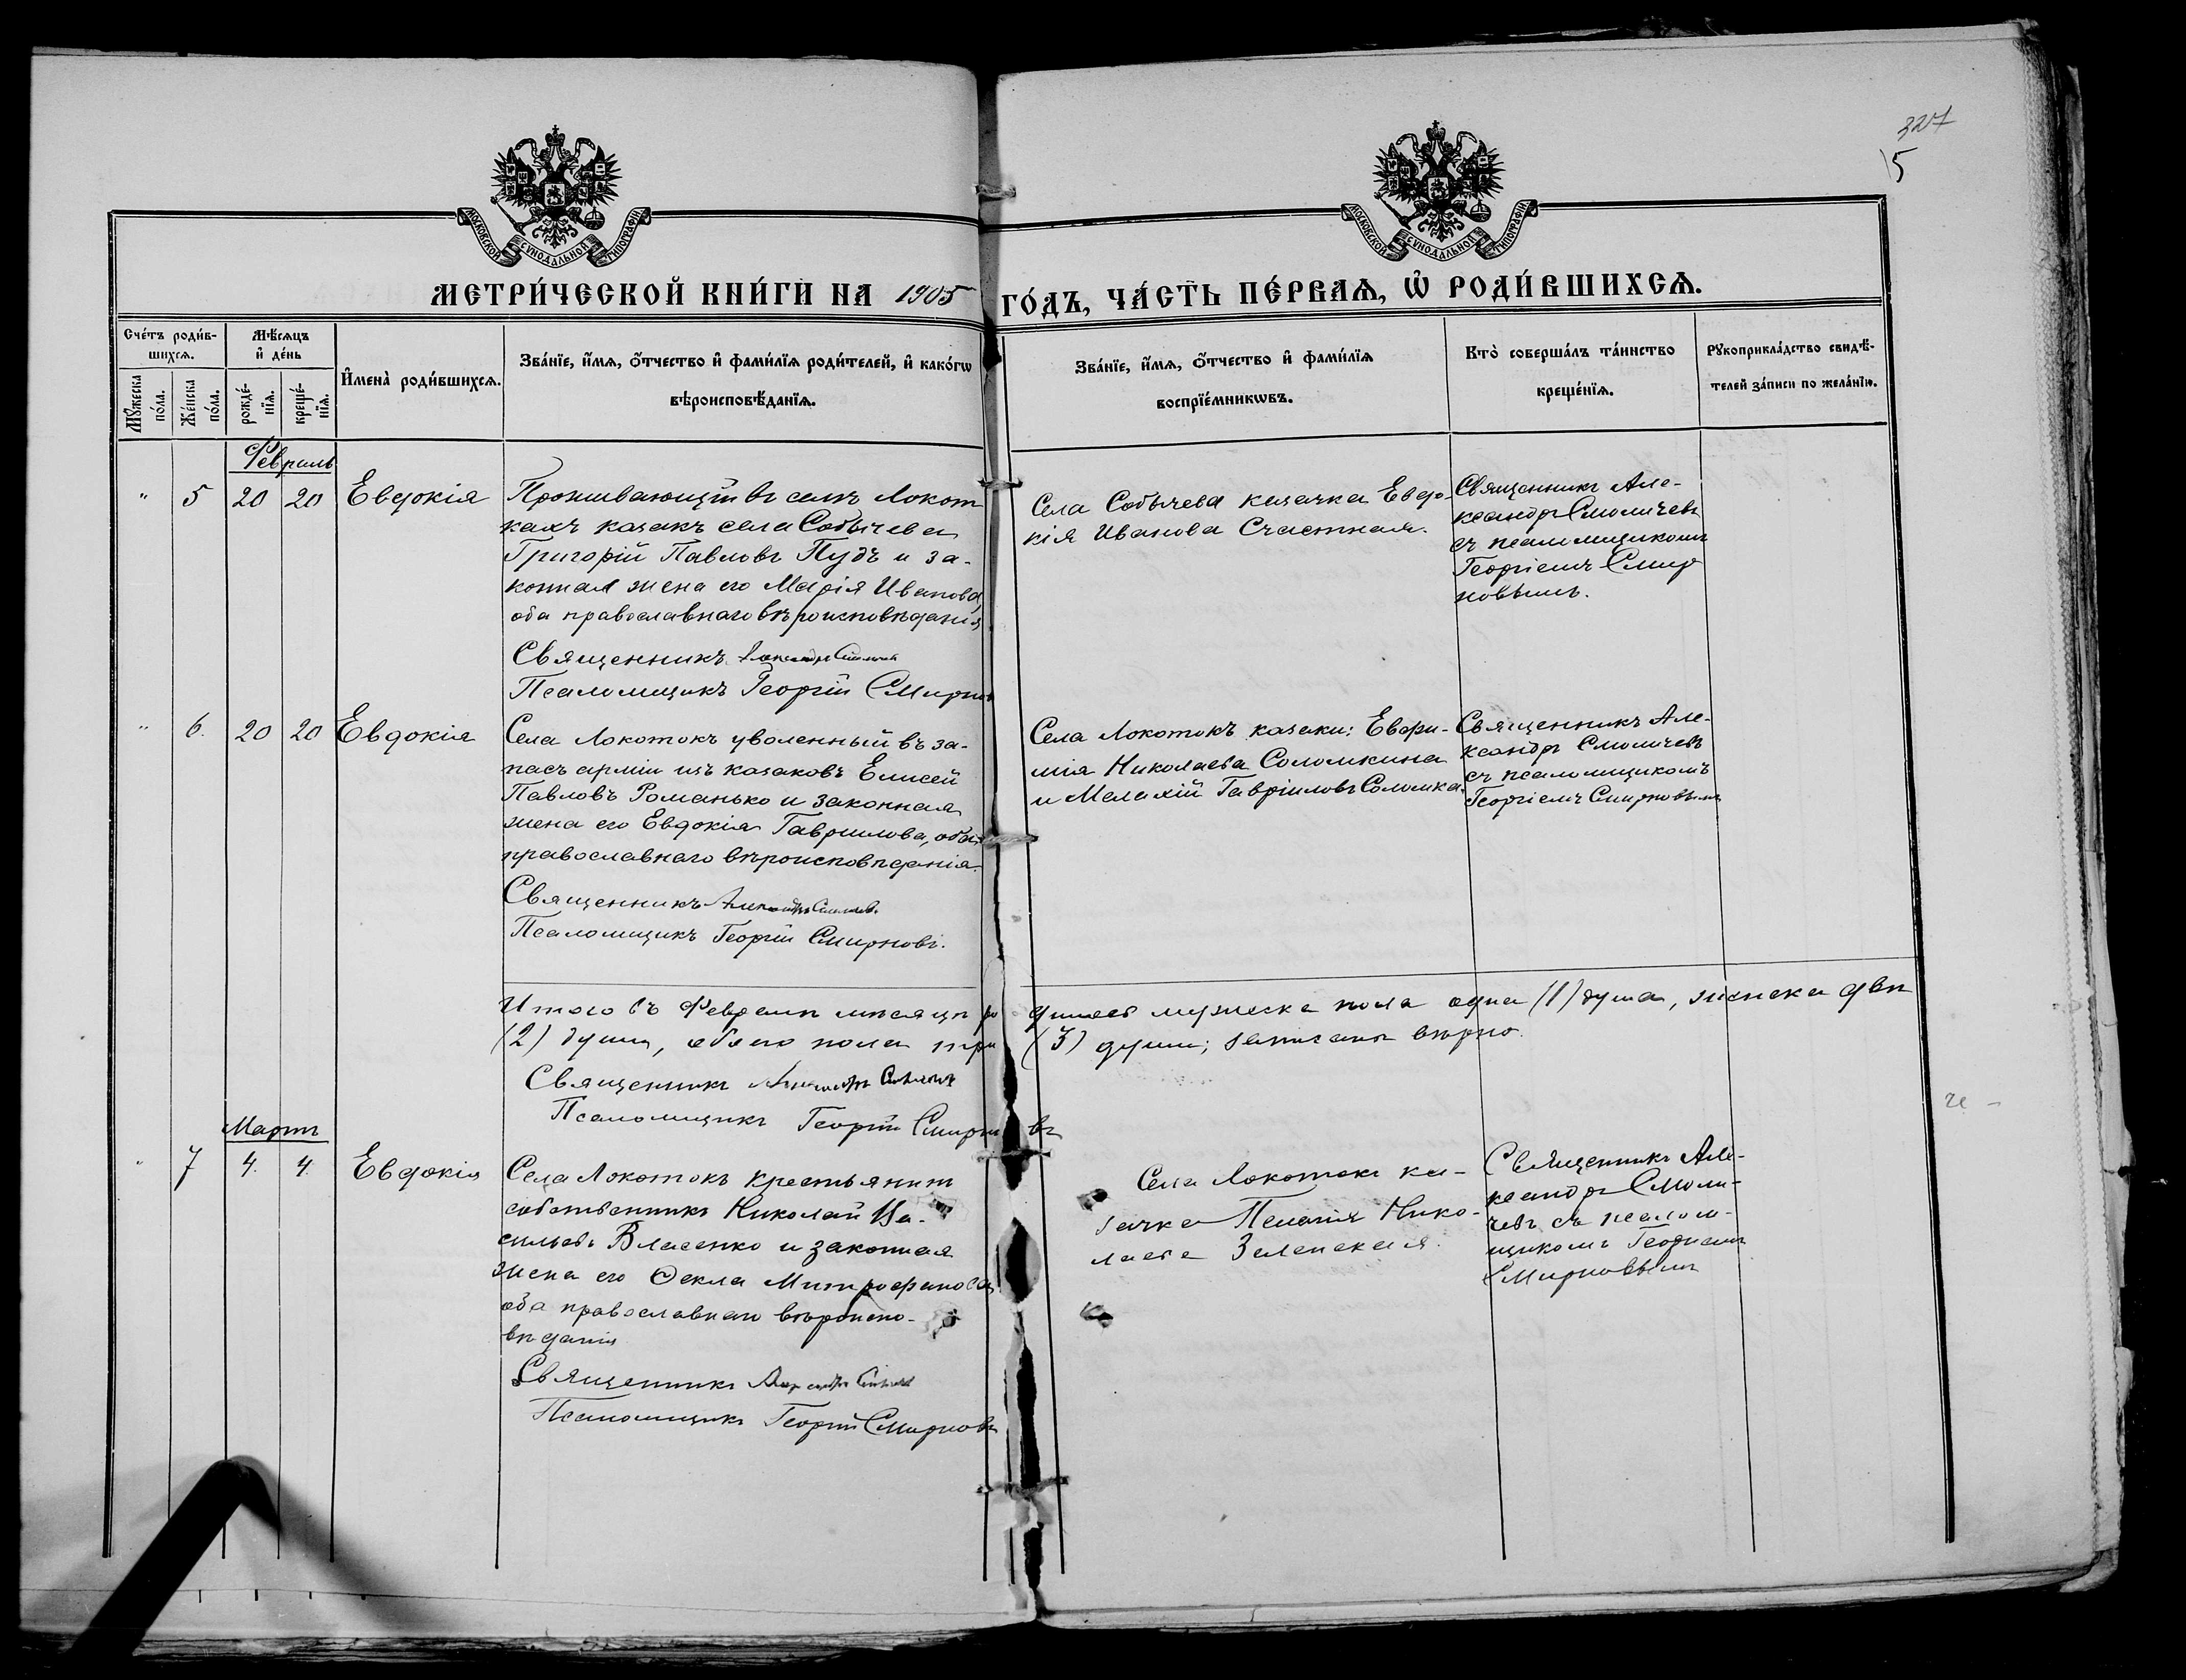 327
15
МОСКОВСКОЙ СѴНОДАЛЬНОЙ ТИПОГРАФІИ
МОСКОВСКОЙ СѴНОДАЛЬНОЙ ТИПОГРАФІИ
МЕТРИ́ЧЕСКОЙ КНИ́ГИ НА 1905 ГО́ДЪ, ЧА́СТЬ ПЕ́РВАѦ, Ѽ РОДИ́ВШИХСѦ.
Сче́тъ роди́в-
шихсѧ.
Мѣ́сѧцъ
и҆ де́нь
Мꙋ́жеска
по́ла.
Же́нска
по́ла.
рожде́-
нїѧ.
креще́-
нїѧ.
И҆мена̀ роди́вшихсѧ.
Зва́нїе, и҆́мѧ, ѻ҆́тчество и҆ фами́лїѧ роди́телей, и҆ како́гѡ
вѣроисповѣ́данїѧ.
Зва́нїе, и҆́мѧ, ѻ҆́тчество и҆ фами́лїѧ
воспрїе́мникѡвъ.
Кто̀ соверша́лъ та́инство
креще́нїѧ.
Рꙋкоприкла́дство свидѣ́-
телей за́писи по жела́нїю.
Февраль
" 5 20 20 Евдокія
Проживающій въ селѣ Локот
кахъ казакъ села Собычева
Григорій Павловъ Пудъ и за-
конная жена его Марія Иванова,
оба православнаго вѣроисповѣданія
Священникъ Александръ Смоличевъ
Псаломщикъ Георгій Смирнов
Села Собычева казачка Евдо-
кія Иванова Счастная.
Священникъ Але-
ксандръ Смоличевъ
съ псаломщикомъ
Георгіемъ Смир
новымъ.
" 6. 20 20 Евдокія
Села Локотокъ уволенный въ за-
пасъ арміи изъ казаковъ Елисей
Павловъ Романько и законная
жена его Евдокія Гавриилова, оба
православнаго вѣроисповѣданія.
Священникъ Александръ Смоличевъ.
Псаломщикъ Георгій Смирновъ.
Села Локотокъ казаки: Евфи-
мія Николаева Соломкина
и Малахій Гавріиловъ Соломка.
Священникъ Але-
ксандръ Смоличевъ
съ псаломщикомъ
Георгіемъ Смирновымъ
Итого въ Февралѣ мѣсяцѣ ро дилось мужеска пола одна (1) душа, женска двѣ
(2) души, обоего пола три (3) души; записано вѣрно.
Священникъ Александръ Смоличевъ
Псаломщикъ Георгій Смирновъ
Мартъ
" 7 4. 4. Евдокія
Села Локотокъ крестьянинъ
собственникъ Николай Ва-
сильевъ Власенко и законная
жена его Ѳекла Митрофанова,
оба православнаго вѣроиспо-
вѣданія
Священникъ Александръ Смоличевъ
Псаломщикъ Георгій Смирновъ
Села Локотокъ ка-
зачка Пелагія Нико-
лаева Зеленская.
Священникъ Але-
ксандръ Смоли-
чевъ съ псалом-
щикомъ Георгіемъ
Смирновымъ